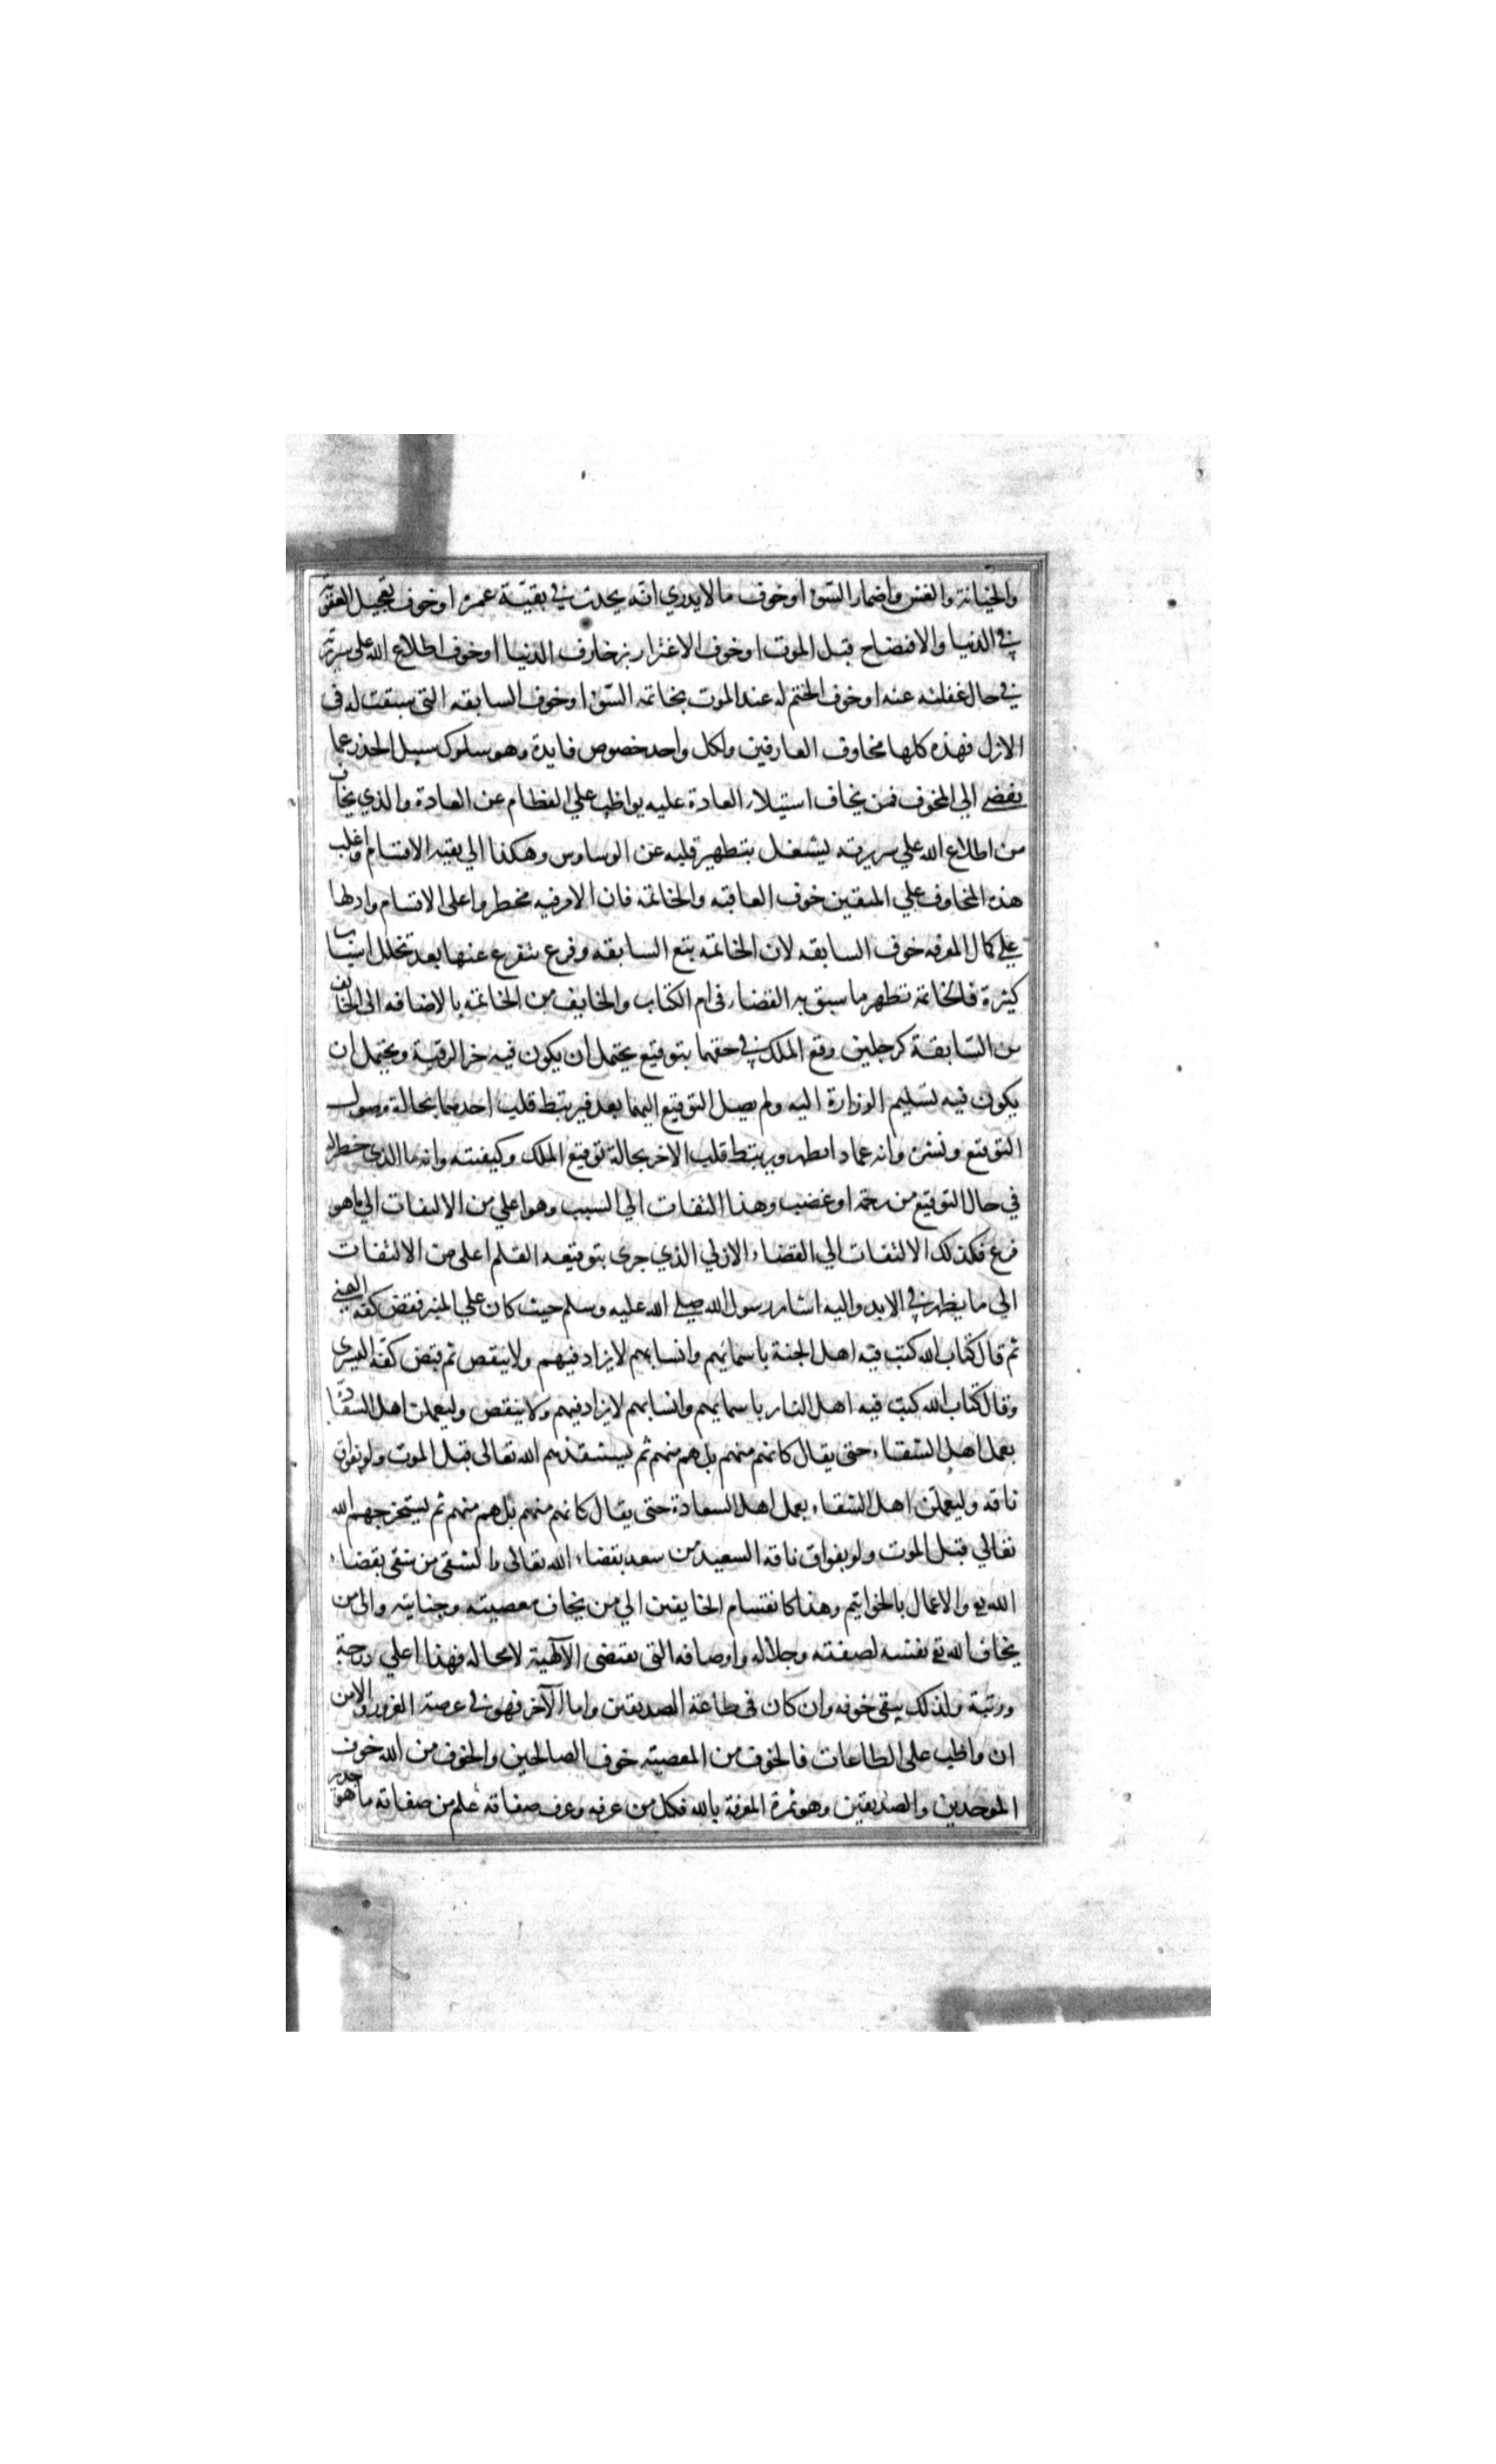 والخيانة والغش واضمار السوء او خوف ما لا يدري انه يحدث في بقية عمره او خوف تعجيل العقوبة
في الدنيا والافتضاح قبل الموت او خوف الاغترار بزخارف الدنيا او خوف اطلاع الله علي سريرته
في حال غفلته عنه او خوف الختم له عند الموت بخاتمه السوء او خوف السابقه التي سبقت له في
الازل فهذه كلها مخاوف العارفين ولكل واحد خصوص فايدة وهو سلوك سبيل الحذر عما
يفضي الي المخوف فمن يخاف استيلاء العادة عليه يواظب علي الفطام عن العادة والذي يخاف
من اطلاع الله علي سريرته يشتغل بتطهير قلبه عن الوساوس وهكذا الي بقيه الاقسام واغلب
هذه المخاوف علي المتقين خوف العاقبه والخاتمه فان الامر فيه مخطر واعلي الاقسام وادلها
علي كمال المعرفه خوف السابقه لان الخاتمه تتبع السابقه وفرع يتفرع عنها بعد تخلل اسباب
كثيرة فالخاتمه تظهر ما سبق به القضاء في ام الكتاب والخايف من الخاتمه بالاضافه الي الخايف
من السابقة كرجلين وقع الملك في حقهما بتوقيع يحتمل ان يكون فيه حز الرقبة ويحتمل ان
يكون فيه تسليم الوزارة اليه ولم يصل التوقيع اليهما بعد فيرتبط قلب احدهما بحالة وصول
التوقيع ونشره وانه عماذا يظهر ويرتبط قلب الاخر بحالة توقيع الملك وكيفيته وانه ما الذي خطر له
في حال التوقيع من رحمة او غضب وهذا التفات الي السبب وهو اعلي من الالتفات الي ما هو
فرع فكذلك الالتفات الي القضاء الازلي الذي جري بتوقيعه القلم اعلي من الالتفات
الي ما يظهر في الابد واليه اشار رسول الله صلي الله عليه وسلم حيث كان علي المنبر فقبض كفه اليمني
ثم قال كتاب الله كتب فيه اهل الجنة باسمائهم وانسابهم لا يزاد فيهم ولا ينقص ثم قبض كفه اليسري
وقال كتاب الله كتب فيه اهل النار باسمايهم وانسابهم لا يزاد فيهم ولا ينقص وليعملن اهل السعادة
بعمل اهل الشقاء حتى يقال كانهم منهم بل هم منهم ثم يستنقذهم الله تعالى قبل الموت ولو بفواق
ناقه وليعملن اهل الشقاء بعمل اهل السعادة حتى يقال كانهم منهم بل هم منهم ثم يستخرجهم الله
تعالي قبل الموت ولو بفواق ناقه السعيد من سعد بقضاء الله تعالى والشقي من شقي بقضاء
الله تع والاعمال بالخواتيم وهذا كانقسام الخايفين الي من يخاف معصيته وجنايته والي من
يخاف الله تع نفسه لصفته وجلاله واوصافه التي يقتضي الآلهية لا محاله فهذا اعلي درجة
ورتبة ولذلك يبقي خوفه وان كان في طاعة الصديقين واما الآخر فهو في عرصة الغرور والامن
ان واظب علي الطاعات فالخوف من المعصيته خوف الصالحين والخوف من الله خوف
الموحدين والصديقين وهو ثمرة المعرفة بالله فكل من عرفه وعرف صفاته علم من صفاته ما هو جدير